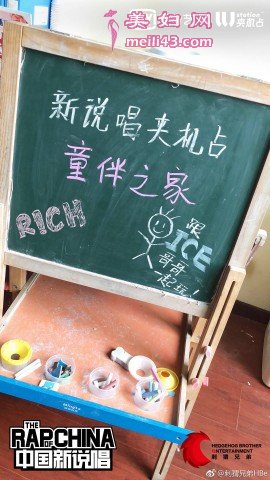 美妇网
meili43.com
station
夹机占
新说唱夹机占
童伴之家
RICH
跟
ICE
哥哥
一起玩!
THE
RAP OF CHINA
中国新说唱
HEDGEHOG BROTHER
ENTERTAINMENT
刺猬兄弟
@刺猬兄弟HBe